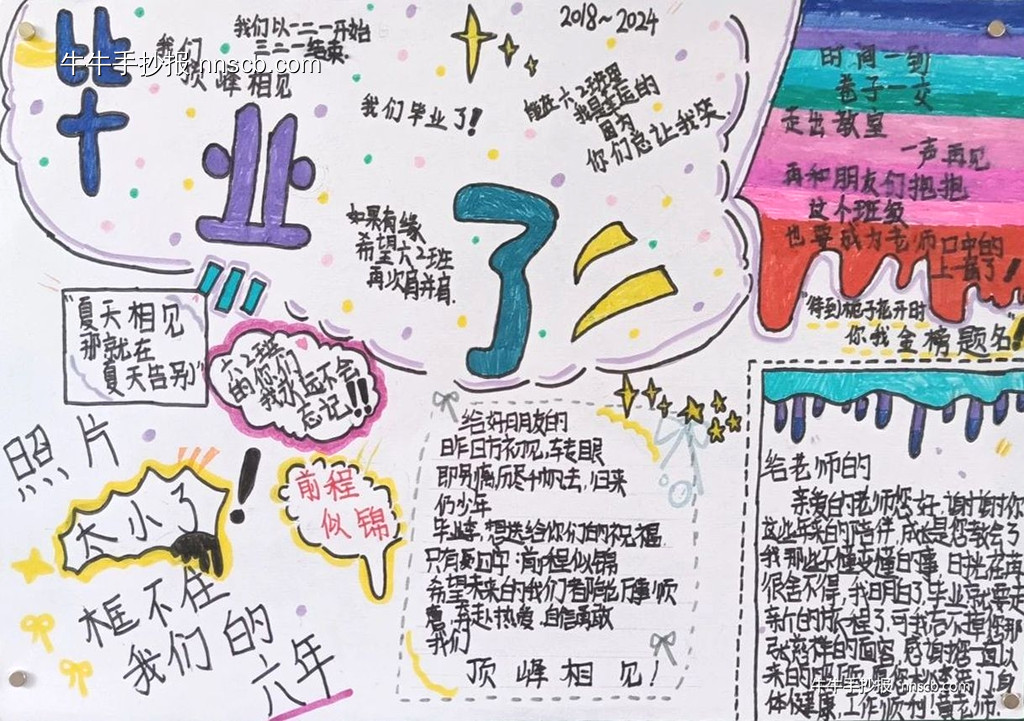 毕业了
2018~2024
我们以一二一开始
三二一结束
我们
顶峰相见
牛牛手抄报 nnscb.com
我们毕业了!
能在六2班里
我是幸运的
因为
你们总让我笑.
如果有缘
希望六2班
再次肩并肩.
时间一到
卷子一交
走出教室
一声再见
再和朋友们抱抱
这个班级
也要成为老师口中的
上一届了!
"待到栀子花开时
你我金榜题名"!
"夏天相见
那就在
夏天告别"
六2班
的你们
我永远不会
忘记!!
照片
太小了!
框不住
我们的
六年
前程
似锦
给好朋友的
昨日方初见,转眼
即别离,历尽千帆去,归来
仍少年
毕业季,想送给你们的祝福
只有四字:前程似锦
希望未来的我们都能万事顺
意,奔赴热爱,自信勇敢
我们
顶峰相见!
给老师的
亲爱的老师您好,谢谢你
这些年来的陪伴,成长是您教会了
我那些不懂变懂的事,时光在苒
很舍不得,我明白了,毕业就要走
新的旅程了,可我忘不掉您那
张慈祥的面容,感谢您一直以
来的
体健康,工作顺利!黄老师.
牛牛手抄报 nnscb.com